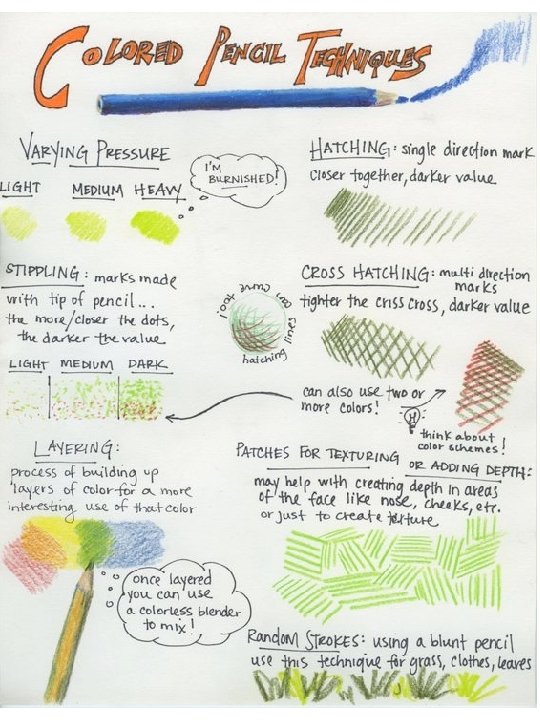 COLORED PENCIL TECHNIQUES
VARYING PRESSURE
LIGHT MEDIUM HEAVY
I'M
BURNISHED!
HATCHING: single direction mark
closer together, darker value
STIPPLING: marks made
with tip of pencil...
the more/closer the dots,
the darker the value
LIGHT MEDIUM DARK
look you can curve
hatching lines
CROSS HATCHING: multi direction
marks
tighter the criss cross, darker value
can also use two or
more colors!
think about
color schemes!
LAYERING:
process of building up
layers of color for a more
interesting use of that color
once layered
you can use
a colorless blender
to mix!
PATCHES FOR TEXTURING
OR ADDING DEPTH:
may help with creating depth in areas
of the face like nose, cheeks, etc.
or just to create texture
RANDOM STROKES: using a blunt pencil
use this technique for grass, clothes, leaves